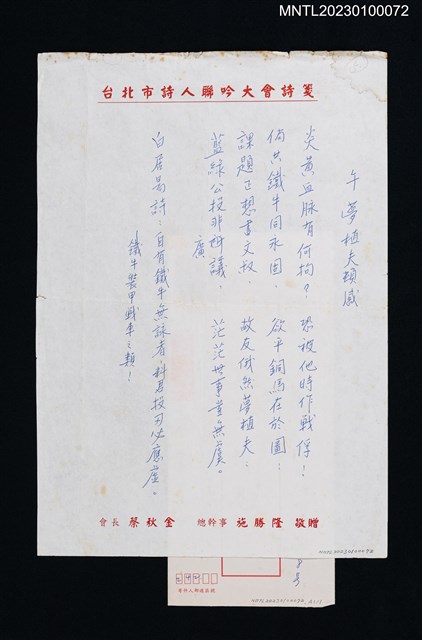 MNTL20230100072
台北市詩人聯吟大會詩箋
午夢植夫頓感
炎黃血脉有何拘？恐被他時作戰俘！
倘共鐵牛同永固，欲平銅馬在於圖：
課題正想書文叔，故友俄然夢植夫：
藍綠公投非所議，茫茫世事豈無虞。
廣
白居易詩：自有鐵牛無詠者，料君投刃必應虛。
鐵牛裝甲戰車之類！
會長 蔡秋金 總幹事 施勝隆 敬贈